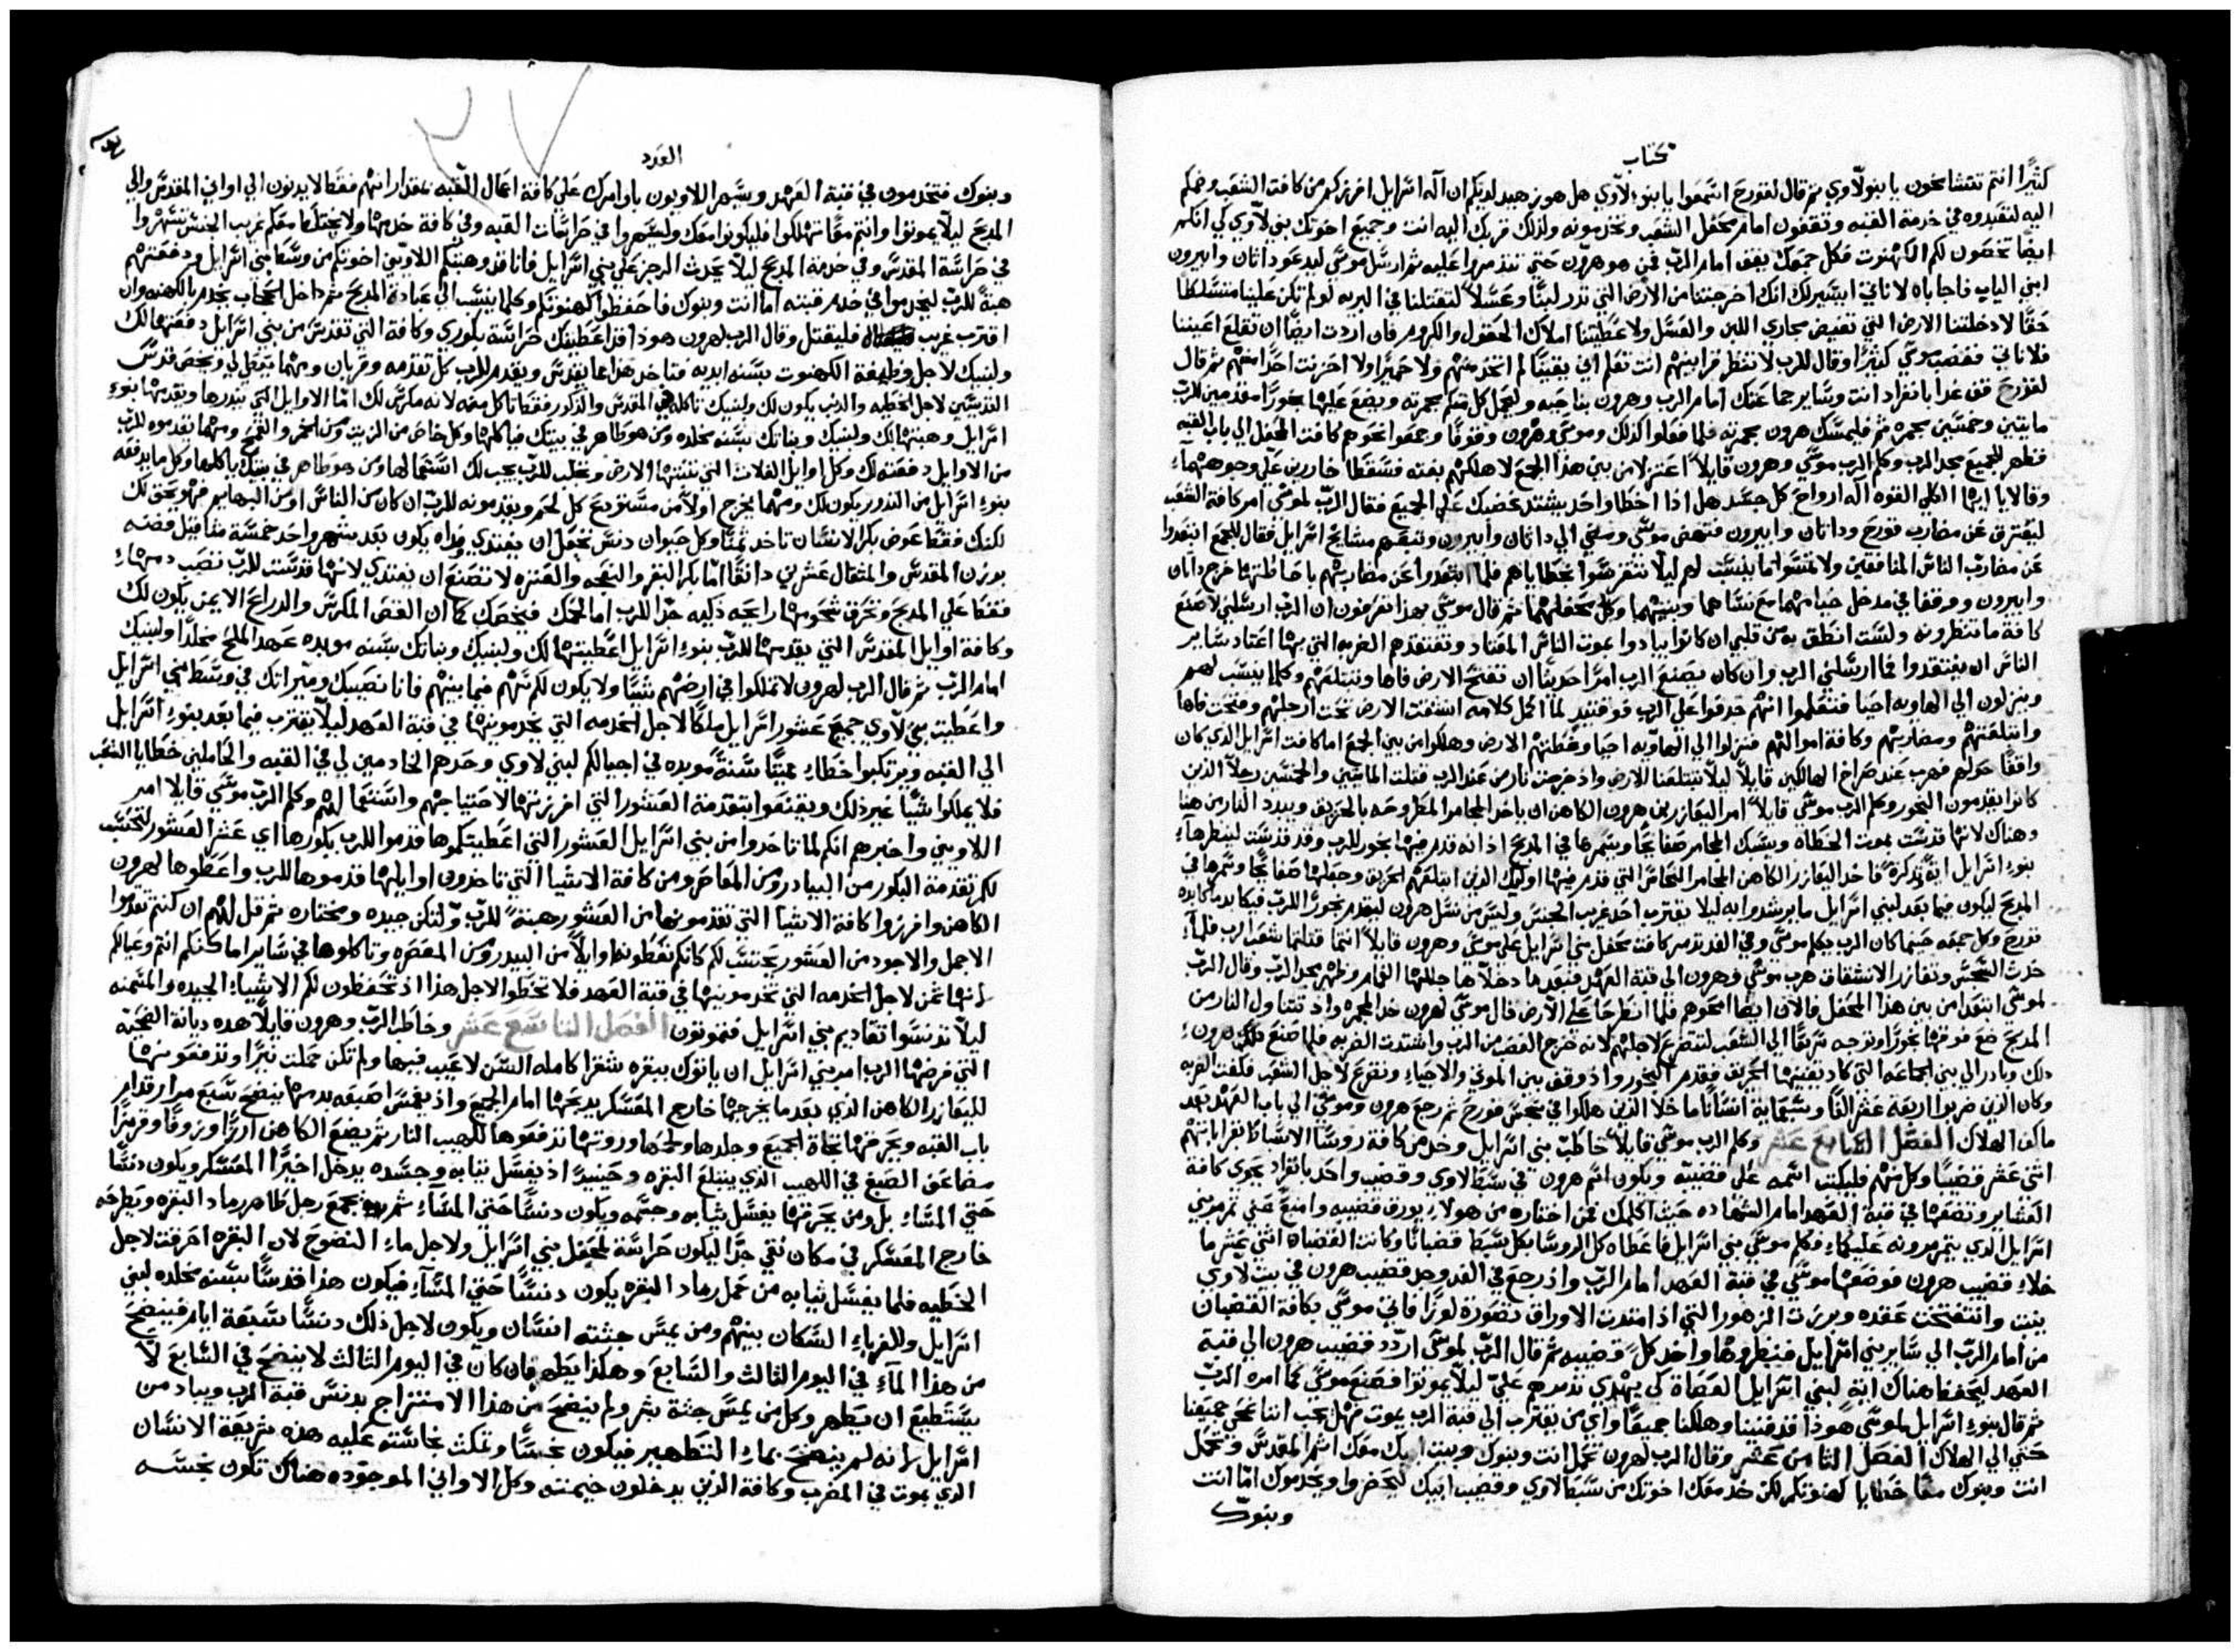 كتاب
كثيرًا انتم تتشامخون يا بنو لاوي ثم قال لقورح اسمعوا يا بنو لاوي هل هو زهيد لديكم ان اله اسرايل افرزكم من كافت الشعب وضمكم
اليه لتعبدوه في خدمة القبه وتقفون امام محفل الشعب وتخدمونه ولذلك قربك اليه انت وجميع اخوتك بني لاوي كي انكم
ايضًا تخصون لكم الكهنوت فكل جمعك يقف امام الربّ فمن هو هرون حتي تتذمروا عليه ثم ارسل موسي ليدعو داثان وابيرون
ابني الياب فاجاباه لا ناتي ايتيسر لك انك اخرجتنا من الارض التي تدر لبنًا وعسلاً لتقتلنا في البريه لو لم تكن علينا متسلطًا
حقًا لادخلتنا الارض التي تفيض مجاري اللبن والعسل ولاعطيتنا املاك الحقول والكروم فان اردت ايضًا ان تقلع اعيننا
فلا ناتي فغضب موسي كثيرًا وقال للرب لا تنظر قرابينهم انت تعلم اني يقينًا لم اتخذ منهم ولا حميرًا ولا احزنت احدًا منهم ثم قال
لقورح قف غدا بانفراد انت وساير جماعتك امام الرب وهرون بناحيه وليحمل كل منكم مجمرته ويضع عليها بخورًا مقدمين للربّ
مايتين وخمسين مجمره ثم فليمسك هرون مجمرته فلما فعلوا كذلك وموسي وهرون وقوفًا وجمعوا نحوهم كافت المحفل الي باب القبه
فظهر للجميع مجد الرب وكلم الرب موسي وهرون قايلاً اعتزلا من بين هذا الجمع لاهلكهم بغته فسقطا خارين علي وجوههماء
وقالا يا ايها الكلي القوه اله ارواح كل جسد هل اذا اخطا واحد يشتد غضبك علي الجميع فقال الربّ لموسي امر كافة الشعب
ليفترق عن مضارب قورح وداثان وابيرون فنهض موسي ومضي الي داثان وابيرون وتبعهم مشايخ اسرايل فقال للجمع ابتعدوا
عن مضارب الناس المنافقين ولا تمسوا ما ينسب لهم ليلا تنغرسوا بخطاياهم فلما ابتعدوا عن مضاربهم باحاطتها خرج داثان
وابيرون ووقفا في مدخل خيامهما مع نساهما وبنيهما وكل محفلهما ثم قال موسي بهذا تعرفون ان الربّ ارسلني لاصنع
كافة ما تنظرونه ولست انطق به من قلبي ان كانوا يبادوا بموت الناس المعتاد وتفتقدهم الضربه التي بها اعتاد ساير
الناس ان يفتقدوا فما ارسلني الرب وان كان يصنع الرب امرًا حديثًا ان تفتح الارض فاها وتبتلعهم وكلما ينسب لهم
وينزلون الي الهاويه احيا فتعلموا انهم جدفوا علي الرب فوقتيد لما اكمل كلامه انشقت الارض تحت ارجلهم وفتحت فاها
وابتلعتهم ومضاربهم وكافة اموالهم فنزلوا الي الهاويه احيا وغطتهم الارض وهلكوا من بين الجمع اما كافت اسرايل الذي كان
واقفًا حولهم فهرب عند صراخ الهالكين قايلاً ليلا تبتلعنا الارض واذ خرجت نار من عند الرب قتلت المايتين والخمسين رجلاً الذين
كانوا يقدمون البخور وكلم الرب موسي قايلاً امر اليعازر بن هرون الكاهن ان ياخذ المجامر المطروحه بالحريق ويبدد النار من هنا
وهناك لانها قدست بموت الخطاه ويسبك المجامر صفايحًا ويسمرها في المذبح اذ انه قدم فيها بخور للرب وقد قدست لينظرهاء
بنوء اسرايل ايةً وتذكرةً فاخذ اليعازر الكاهن المجامر النحاس التي قدم فيها اوليك الذين ابتلعهم الحريق وجعلها صفايحًا وسمرها في
المذبح ليكون فيما بعد لبني اسرايل ما يرشدوا به ليلا يقترب احد غريب الجنس وليس من نسل هرون ليقدم بخورًا للرب فيكابد ما كابده
قورح وكل جمعه حينما كان الرب يكلم موسي وفي الغد تذمر كافت محفل بني اسرايل علي موسي وهرون قايلاً انتما قتلتما شعب الرب فلماء
حدث السجس وتعازر الانشقاق هرب موسي وهرون الي قبة العهد فبعدما دخلاها جللها الغمام وظهر مجد الربّ وقال الربّ
لموسي ابتعدا من بين هذا المحفل فالان ايضا امحوهم فلما انطرحا علي الارض قال موسي لهرون خذ المجمره واذ تتناول النار من
المذبح ضع فوقها بخورًا وتوجه سريعًا الي الشعب لتتضرع لاجلهم لانه خرج الغضب من الرب واشتدت الضربه فلما صنع هرونء
ذلك وبادر الي بين الجماعه التي كاد يفنيها الحريق فقدم البخور واذ وقف بين الموتي والاحياء وتضرع لاجل الشعب فكفت الضربه
وكان الذين ضربوا اربعة عشر الفًا وسبعماية انسانًا ما خلا الذين هلكوا في سجس قورح ثم رجع هرون وموسي الي باب العهد بعد
ما كف الهلاك الفصل السابع عشر وكلم الرب موسي قايلاً خاطب بني اسرايل وخذ من كافة روسا الاسباط بقراباتهم
اثني عشر قضيبًا وكل منهم فليكتب اسمه علي قضيبه ويكون اسم هرون في سبط لاوي وقضيب واحد بانفراد يحوي كافة
العشاير وتضعها في قبة العهد امام الشهاده حيث اكلمك فمن اختاره من هولاء يورق قضيبه وامنع عني تذمر بني
اسرايل الذي يتمرمرونه عليكماء فكلم موسي بني اسرايل فاعطاه كل الروسا بكل سبط قضبانًا وكانت القضبان اثني عشر ما
خلاء قضيب هرون فوضعها موسي في قبة العهد امام الربّ واذ رجع في الغد وجد قضيب هرون في بيت لاوي
ينبت وانتفخت عقده وبرزت الزهور التي اذ امتدت الاوراق تصورة لوزًا فاتي موسي بكافة القضبان
من امام الربّ الي ساير بني اسرايل فنظروها واخذ كلً قضيبه ثم قال الربّ لموسي اردد قضيب هرون الي قبة
العهد ليحفظ هناك اية لبني اسرايل العصاة كي يهدي تذمرهم علي ليلا يموتوا فصنع موسي كما امره الربّ
ثم قال بنوء اسرايل لموسي هوذا قد فنينا وهلكنا جميعًا واي من يقترب الي قبة الرب يموت فهل يجب اننا نمحي جميعنا
حتي الي الهلاك الفصل الثامن عشر وقال الرب لهرون تحمل انت وبنوك وبيت ابيك معك اثم المقدس وتحمل
انت وبنوك معًا خطايا كهنوتكم لكن خذ معك اخوتك من سبط لاوي وقضيب ابيك ليحضروا ويخدموك اما انت
وبنوك
العدد
وبنوك فتخدمون في قبة العهد ويسهر اللاويون باوامرك علي كافة اعمال القبه بمقدار انهم فقط لا يدنون الي اواني المقدس والي
المذبح ليلا يموتوا وانتم معًا تهلكوا فليكونوا معك وليسهروا في حراسات القبه وفي كافة خدمها ولا يختلط معكم غريب الجنس تسهروا
في حراسة المقدس وفي خدمة المذبح ليلا يحدث الرجز علي بني اسرايل فانا قد وهبتكم اللاويين اخوتكم من وسط بني اسرايل ودفعتهم
هبةً للرب ليخدموا في خدم قبته اما انت وبنوك فاحفظوا كهنوتكم وكلما ينسب الي عبادة المذبح ثم داخل الحجاب يخدم بالكهنه وان
اقترب غريب فليقتل وقال الرب لهرون هوذا قد اعطيتك حراسة بكوري وكافة التي تتقدس من بني اسرايل دفعتها لك
ولبنيك لاجل وظيفة الكهنوت بسنه ابديه فتاخذ هذا مما يقدس ويقدم للرب كل تقدمه وقربان ومهما يعطي لي ويخص قدس
القديسين لاجل الخطيه والذنب يكون لك ولبنيك تاكله في المقدس والذكور فقط تاكل منه لانه مكرس لك اما الاوايل التي ينذرها ويقدمها بنوء
اسرايل وهبتها لك ولبنيك وبناتك بسنه مخلده ومن هو طاهر في بيتك فياكلها وكل خاص من الزيت ومن الخمر والقمح ومهما يقدموه للربّ
من الاوايل دفعته لك وكل اوايل الغلات التي تنبتها الارض وتجلب للرب يجب لك استعمالها ومن هو طاهر في بيتك ياكلها وكل ما يدفعه
بنوء اسرايل من النذور يكون لك ومهما يخرج اولاً من مستودع كل لحم ويقدمونه للربّ ان كان من الناس او من البهايم فهو يحق لك
لكنك فقط عوض بكر الانسان تاخذ ثمنًا وكل حيوان دنس تجعل ان يفتدي وفداه يكون بعد شهر واحد خمسة مثاقيل فضه
بوزن المقدس والمثقال عشرين دانقًا اما بكر البقر والنعجه والعنزه لا تصنع ان يفتدي لانها قدست للربّ تصب دمهاء
فقط علي المذبح وتحرق شحومها رايحه ذكيه جدًا للرب اما لحمك فيخصك كما ان القص المكرس والذراع الايمن يكون لك
وكافة اوايل المقدس التي يقدمها للربّ بنوء اسرايل اعطيتها لك ولبنيك وبناتك بسنه موبده عهد الملح مخلدًا ولبنيك
امام الربّ ثم قال الرب لهرون لا تملكوا في ارضهم شيئًا ولا يكون لكم سهم فيما بينهم فانا نصيبك وميراثك في وسط بني اسرايل
واعطيت بني لاوي جميع عشور اسرايل ملكًا لاجل الخدمه التي يخدمونها في قبة العهد ليلا يقترب فيما بعد بنوء اسرايل
الي القبه ويرتكبوا خطاء مميتًا سنةً موبده في اجيالكم لبني لاوي وحدهم الخادمين لي في القبه والحاملين خطايا الشعب
فلا يملكوا شيًا غير ذلك ويقنعوا بتقدمة العشور التي افرزتها لاحتياجهم واستعمالهم وكلم الربّ موسي قايلا امر
اللاويين واخبرهم انكم لما تاخذوا من بني اسرايل العشور التي اعطيتكموها قدموا للرب بكورها اي عشر العشور لتحتسب
لكم تقدمة البكور من البيادر ومن المعاصر ومن كافة الاشيا التي تاخذون اوايلها قدموها للرب واعطوها لهرون
الكاهن وافرزوا كافة الاشيا التي تقدمونها من العشور هبةً للربّ ولتكن جيده ومختاره ثم قل لهم ان كنتم تقدموا
الاجمل والاجود من العشور يحتسب لكم كانكم تعطونها وايلاً من البيدر ومن المعصره وتاكلوها في ساير اماكنكم انتم وعيالكم
لانها ثمن لاجل الخدمه التي تخدمونها في قبة العهد فلا تخطوا لاجل هذا اذ تحفظون لكم الاشياء الجيده والسمينه
ليلا تدنسوا تقاديم بني اسرايل فتموتون الفصل التاسع عشر وخاطب الربّ وهرون قايلاً هذه ديانة الضحية
التي فرضها الرب امر بني اسرايل ان ياتوك ببقره شقرا كامله السن لا عيب فيها ولم تكن حملت نيرًا وتدفعونها
لليعازر الكاهن الذي بعدما يخرجها خارج المعسكر يذبحها امام الجميع واذ يغمس اصبعه بدمها ينضح سبع مرار قدام
باب القبه ويحرقها تجاة الجميع وجلدها ولحمها وروثها تدفعوها للهيب النار ثم يضع الكاهن ارزًا وزوفًا وقرمزًا
مضاعف الصبغ في اللهيب الذي يبتلع البقره وحينيذً اذ يغسل ثيابه وجسده يدخل اخيرًا المعسكر ويكون دنسًا
حتي المساء بل ومن يحرقها يغسل ثيابه وجسمه ويكون دنسًا حتي المساء ثم يجمع رجل طاهر رماد البقره ويطرحه
خارج المعسكر في مكان نقي جدًا ليكون حراسة لمحفل بني اسرايل ولاجل ماء النضوح لان البقره احرقت لاجل
الخطيه فلما يغسل ثيابه من حمل رماد البقره يكون دنسًا حتي المساء فيكون هذا قدسًا بسنه مخلده لبني
اسرايل وللغرباء السكان بينهم ومن يمس جثته انسان ويكون لاجل ذلك دنسًا سبعة ايام فينضح
من هذا الماء في اليوم الثالث والسابع وهكذا يطهر فان كان في اليوم الثالث لا ينضح في السابع لا
يستطيع ان يطهر وكل من يمس جثة بشر ولم ينضح من هذا الامتزاج يدنس قبة الرب ويباد من
اسرايل لانه لم ينضح بماء التطهير فيكون نجسًا وتمكث نجاسته عليه هذه شريعة الانسان
الذي يموت في المضرب وكافة الذين يدخلون خيمته وكل الاواني الموجوده هناك تكون نجسه